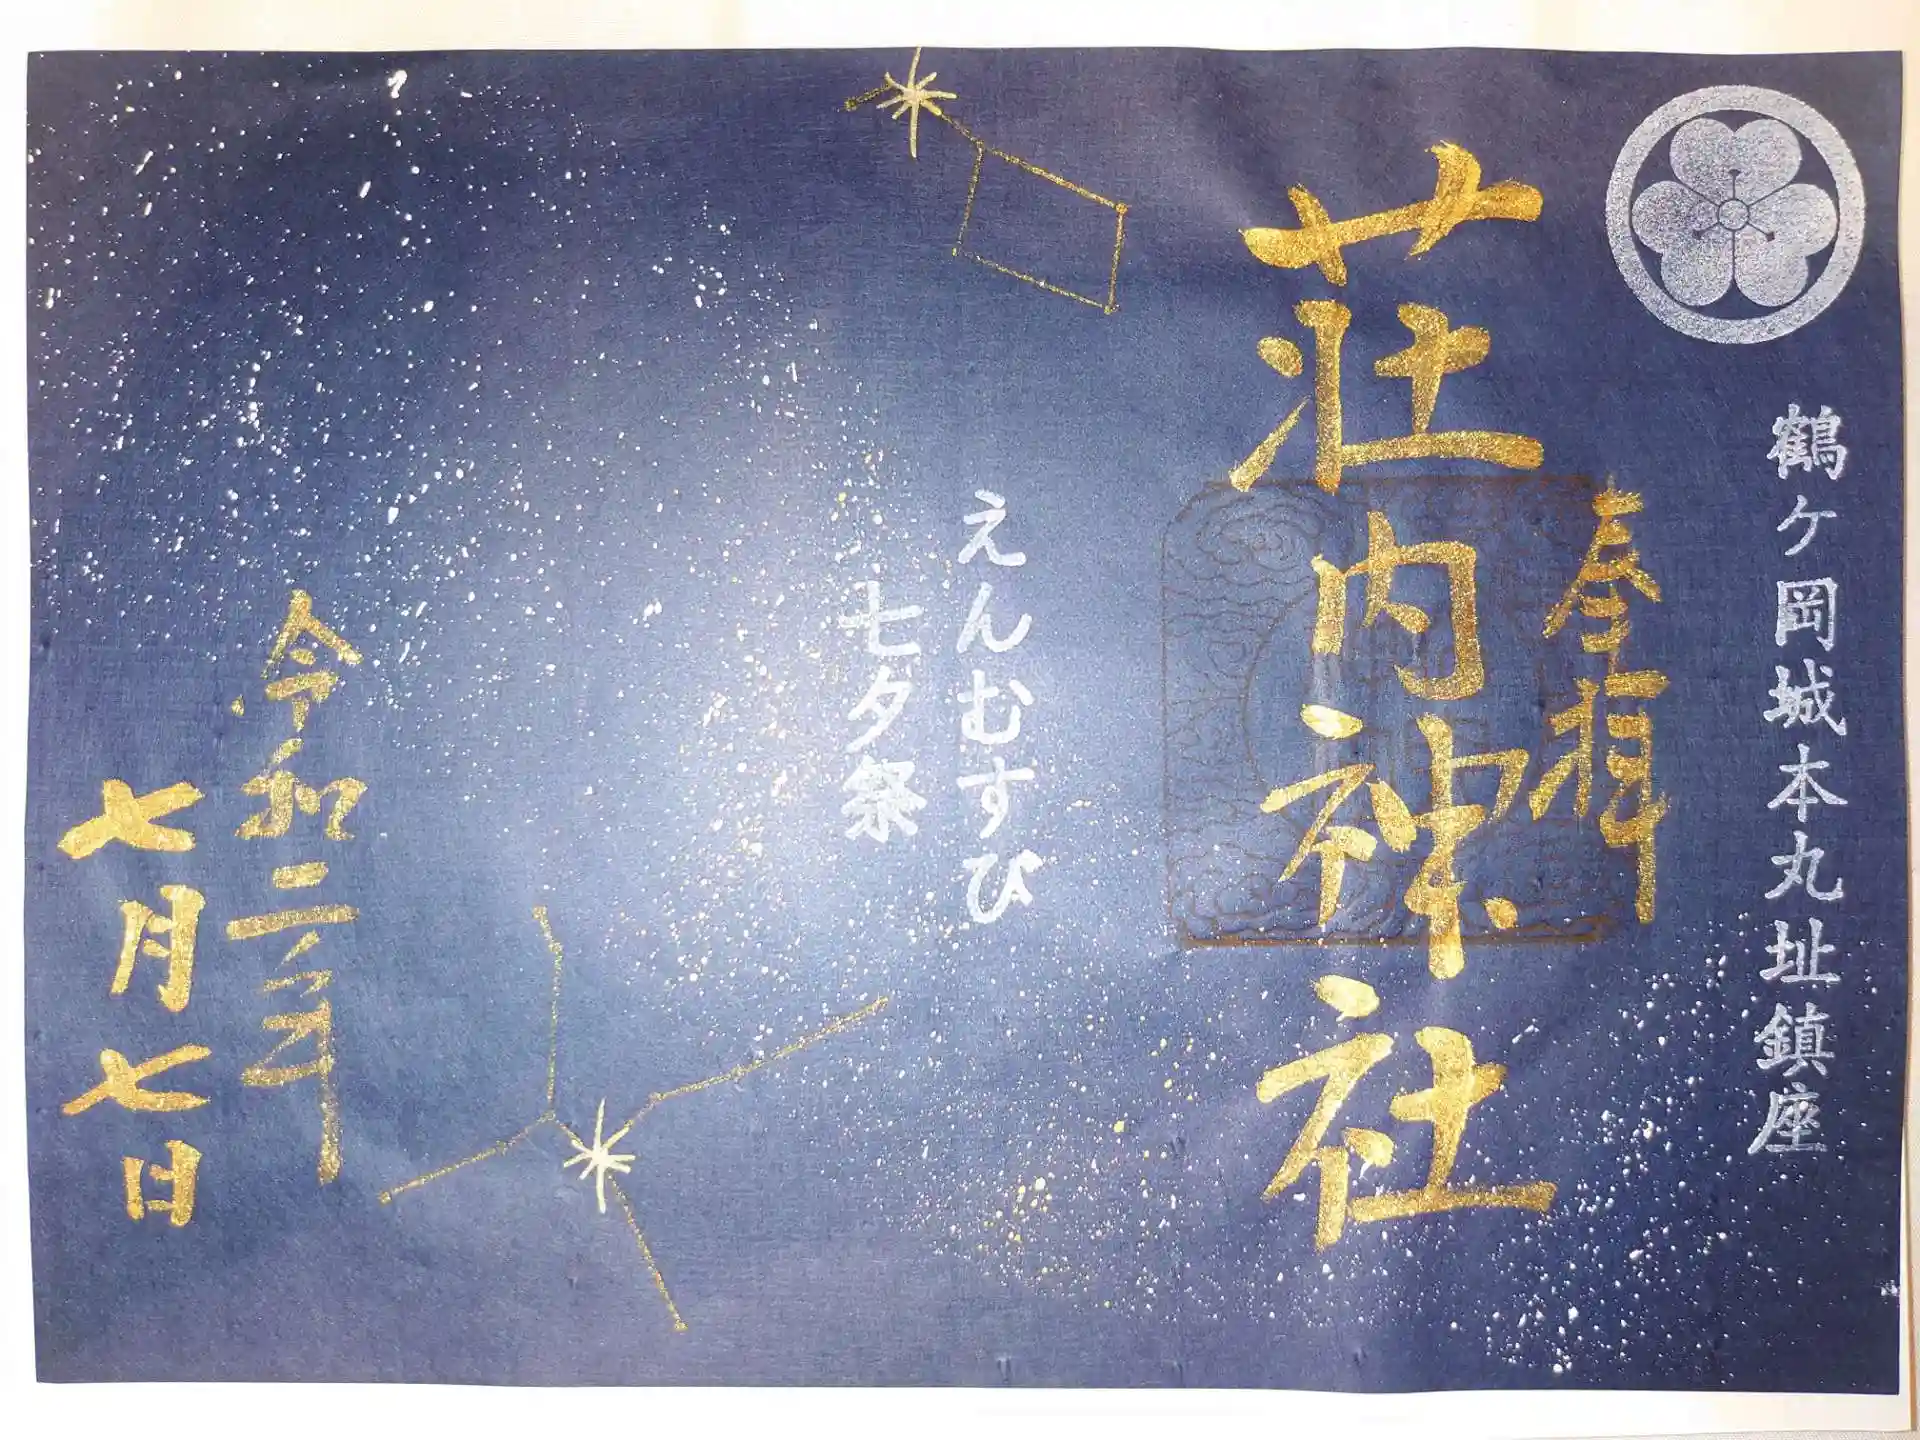 鶴ケ岡城本丸址鎮座
奉拝
荘内神社
えんむすび
七夕祭
令和二年
七月七日